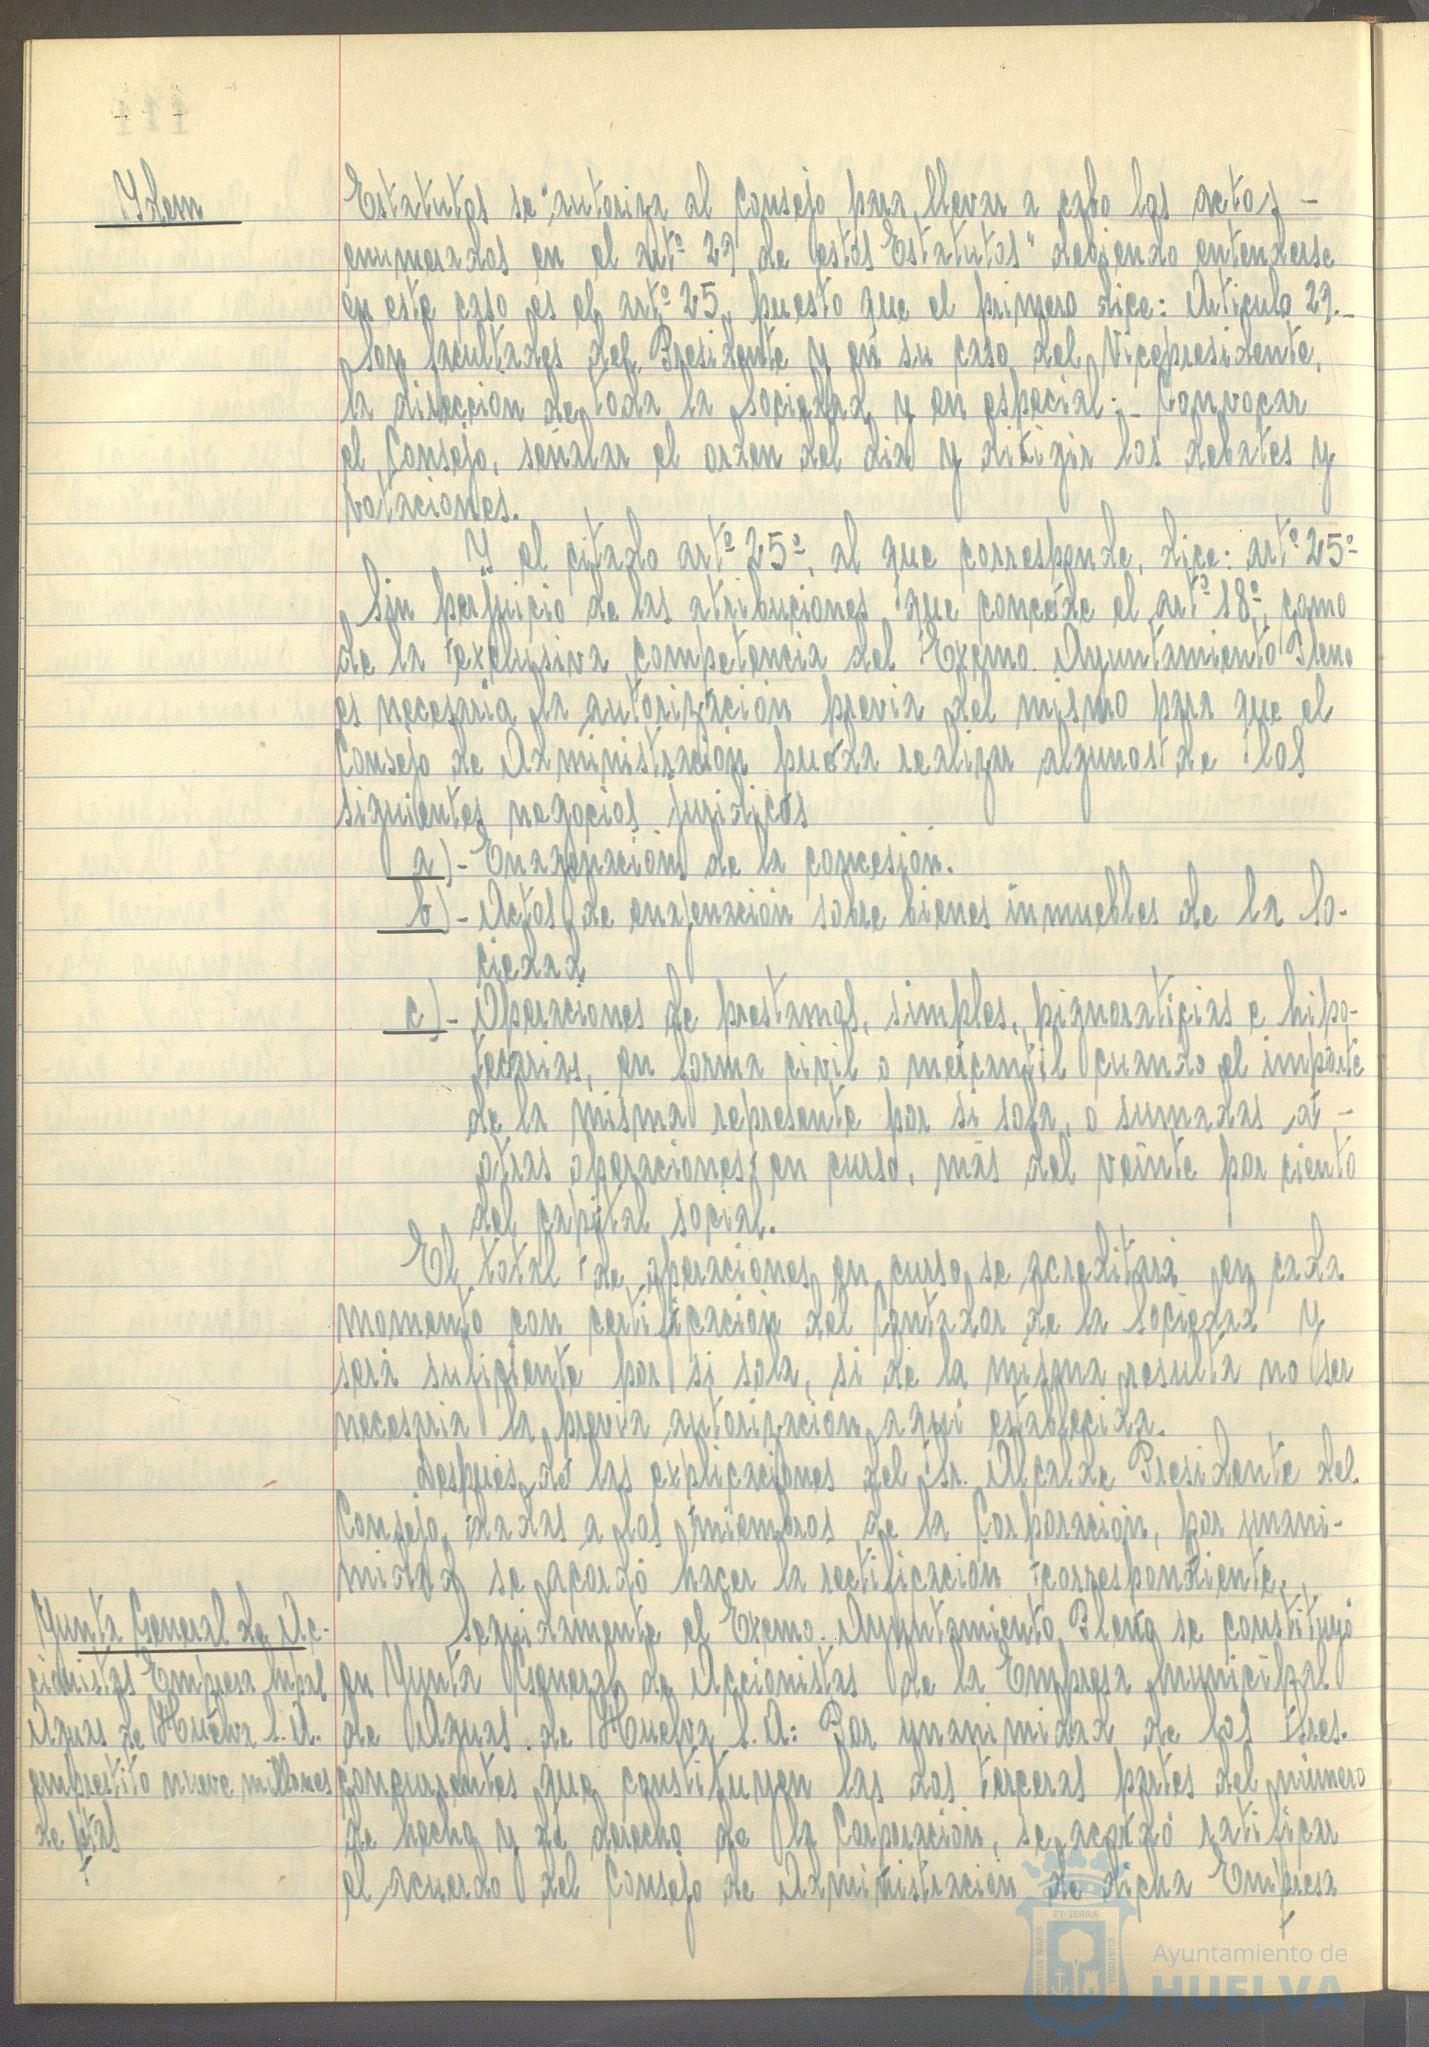 Ydem
Estatutos se "autoriza al Consejo para llevar a cabo los actos –
enumerados en el artº 29 de estos Estatutos" debiendo entenderse
en este caso es el artº 25, puesto que el primero dice: Articulo 29.–
Son facultades del Presidente y en su caso del Vicepresidente,
la dirección de toda la Sociedad y en especial:– Convocar
el Consejo, señalar el orden del dia y dirigir los debates y
votaciones.
Y el citado artº 25º, al que corresponde, dice: artº 25º
Sin perjuicio de las atribuciones que concede el artº 18º, como
de la exclusiva competencia del Excmo. Ayuntamiento Pleno
es necesaria la autorización previa del mismo para que el
Consejo de Administración pueda realizar algunos de los
siguientes negocios juridicos
a)- Enagenación de la concesión.
b)- Actos de enajenación sobre bienes inmuebles de la So-
ciedad
c)- Operaciones de prestamos, simples, pignoraticias e hipo-
tecarias, en forma civil o mercantil cuando el importe
de la misma represente por si sola, o sumadas a –
otras operaciones en curso, más del veinte por ciento
del capital social.
El total de operaciones en curso se acreditará en cada
momento con certificación del Contador de la Sociedad y
será suficiente por si sola, si de la misma resulta no ser
necesaria la previa autorización aqui establecida.
Después de las explicaciones del Sr. Alcalde Presidente del
Consejo, dadas a los miembros de la Corporación, por unani-
midad se acordó hacer la rectificación correspondiente.
Yunta General de Ac-
cionistas Empresa Mpal
Aguas de Huelva S.A.
emprestito nueve millones
de ptas
Seguidamente el Excmo. Ayuntamiento Pleno se constituyó
en Yunta General de Accionistas de la Empresa Municipal
de Aguas de Huelva S.A: Por unanimidad de los Sres.
concurrentes que constituyen las dos terceras partes del número
de hecho y de derecho de la Corporación, se acordó ratificar
el acuerdo del Consejo de Administración de dicha Empresa
PORTUS MARIS ET TERRAE CUSTODIA
Ayuntamiento de
HUELVA